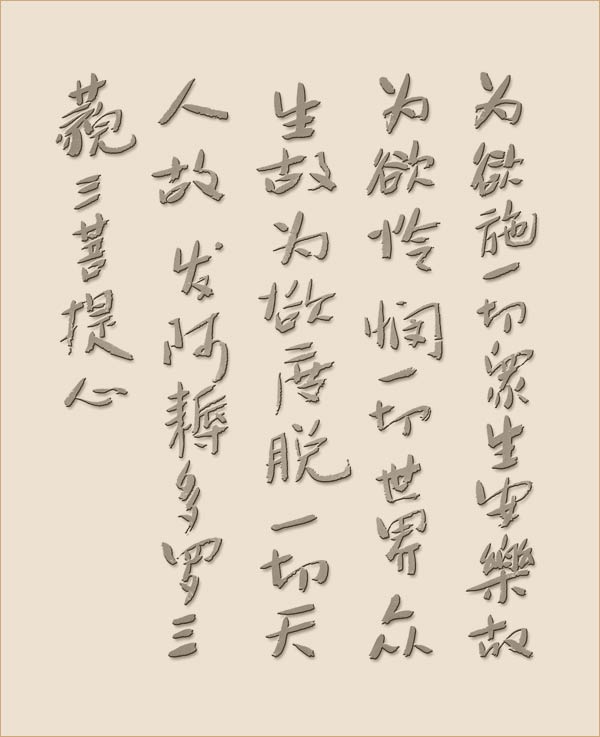 为欲施一切衆生安樂故
为欲怜悯一切世界众
生故为欲度脱一切天
人故发阿耨多罗三
藐三菩提心